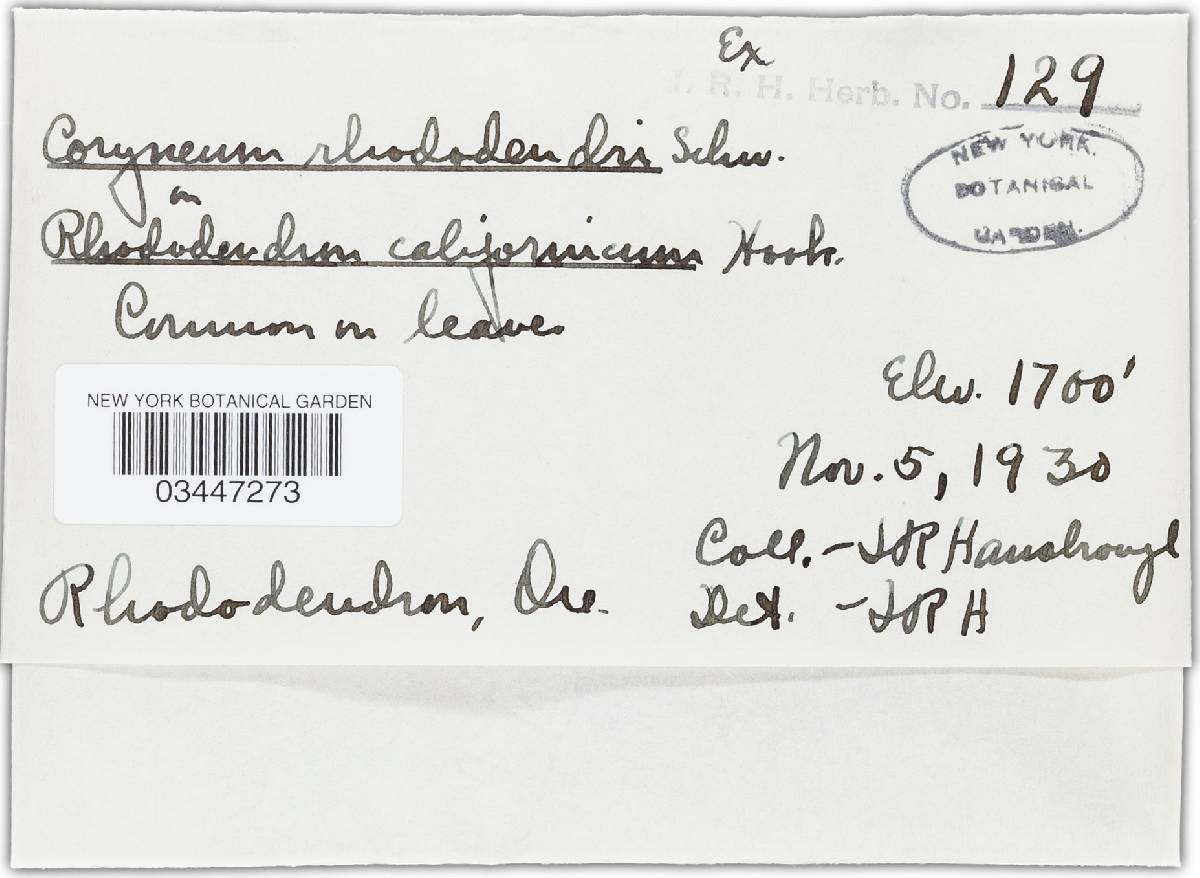 Ex
J. R. H. Herb. No. 129
Coryneum rhododendri Schw.
on
Rhododendron californicum Hook.
Common on leaves
NEW YORK
BOTANICAL
GARDEN.
Elev. 1700'
Nov. 5, 1930
Coll. - JR Hansbrough
Det. - JRH
NEW YORK BOTANICAL GARDEN
03447273
Rhododendron, Ore.